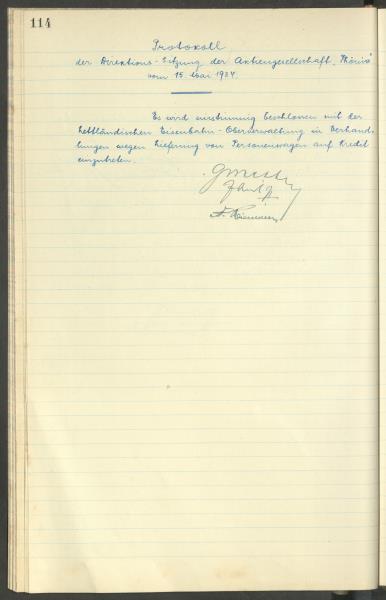 114
Protokoll
der Direktions-Sitzung der Aktiengesellschaft „Phönix"
vom 15. Mai 1934
Es wird einstimmig beschlossen mit der
Lettländischen Eisenbahn-Oberverwaltung in Verhand-
lungen wegen Lieferung von Personenwagen auf Kredit
einzutreten.